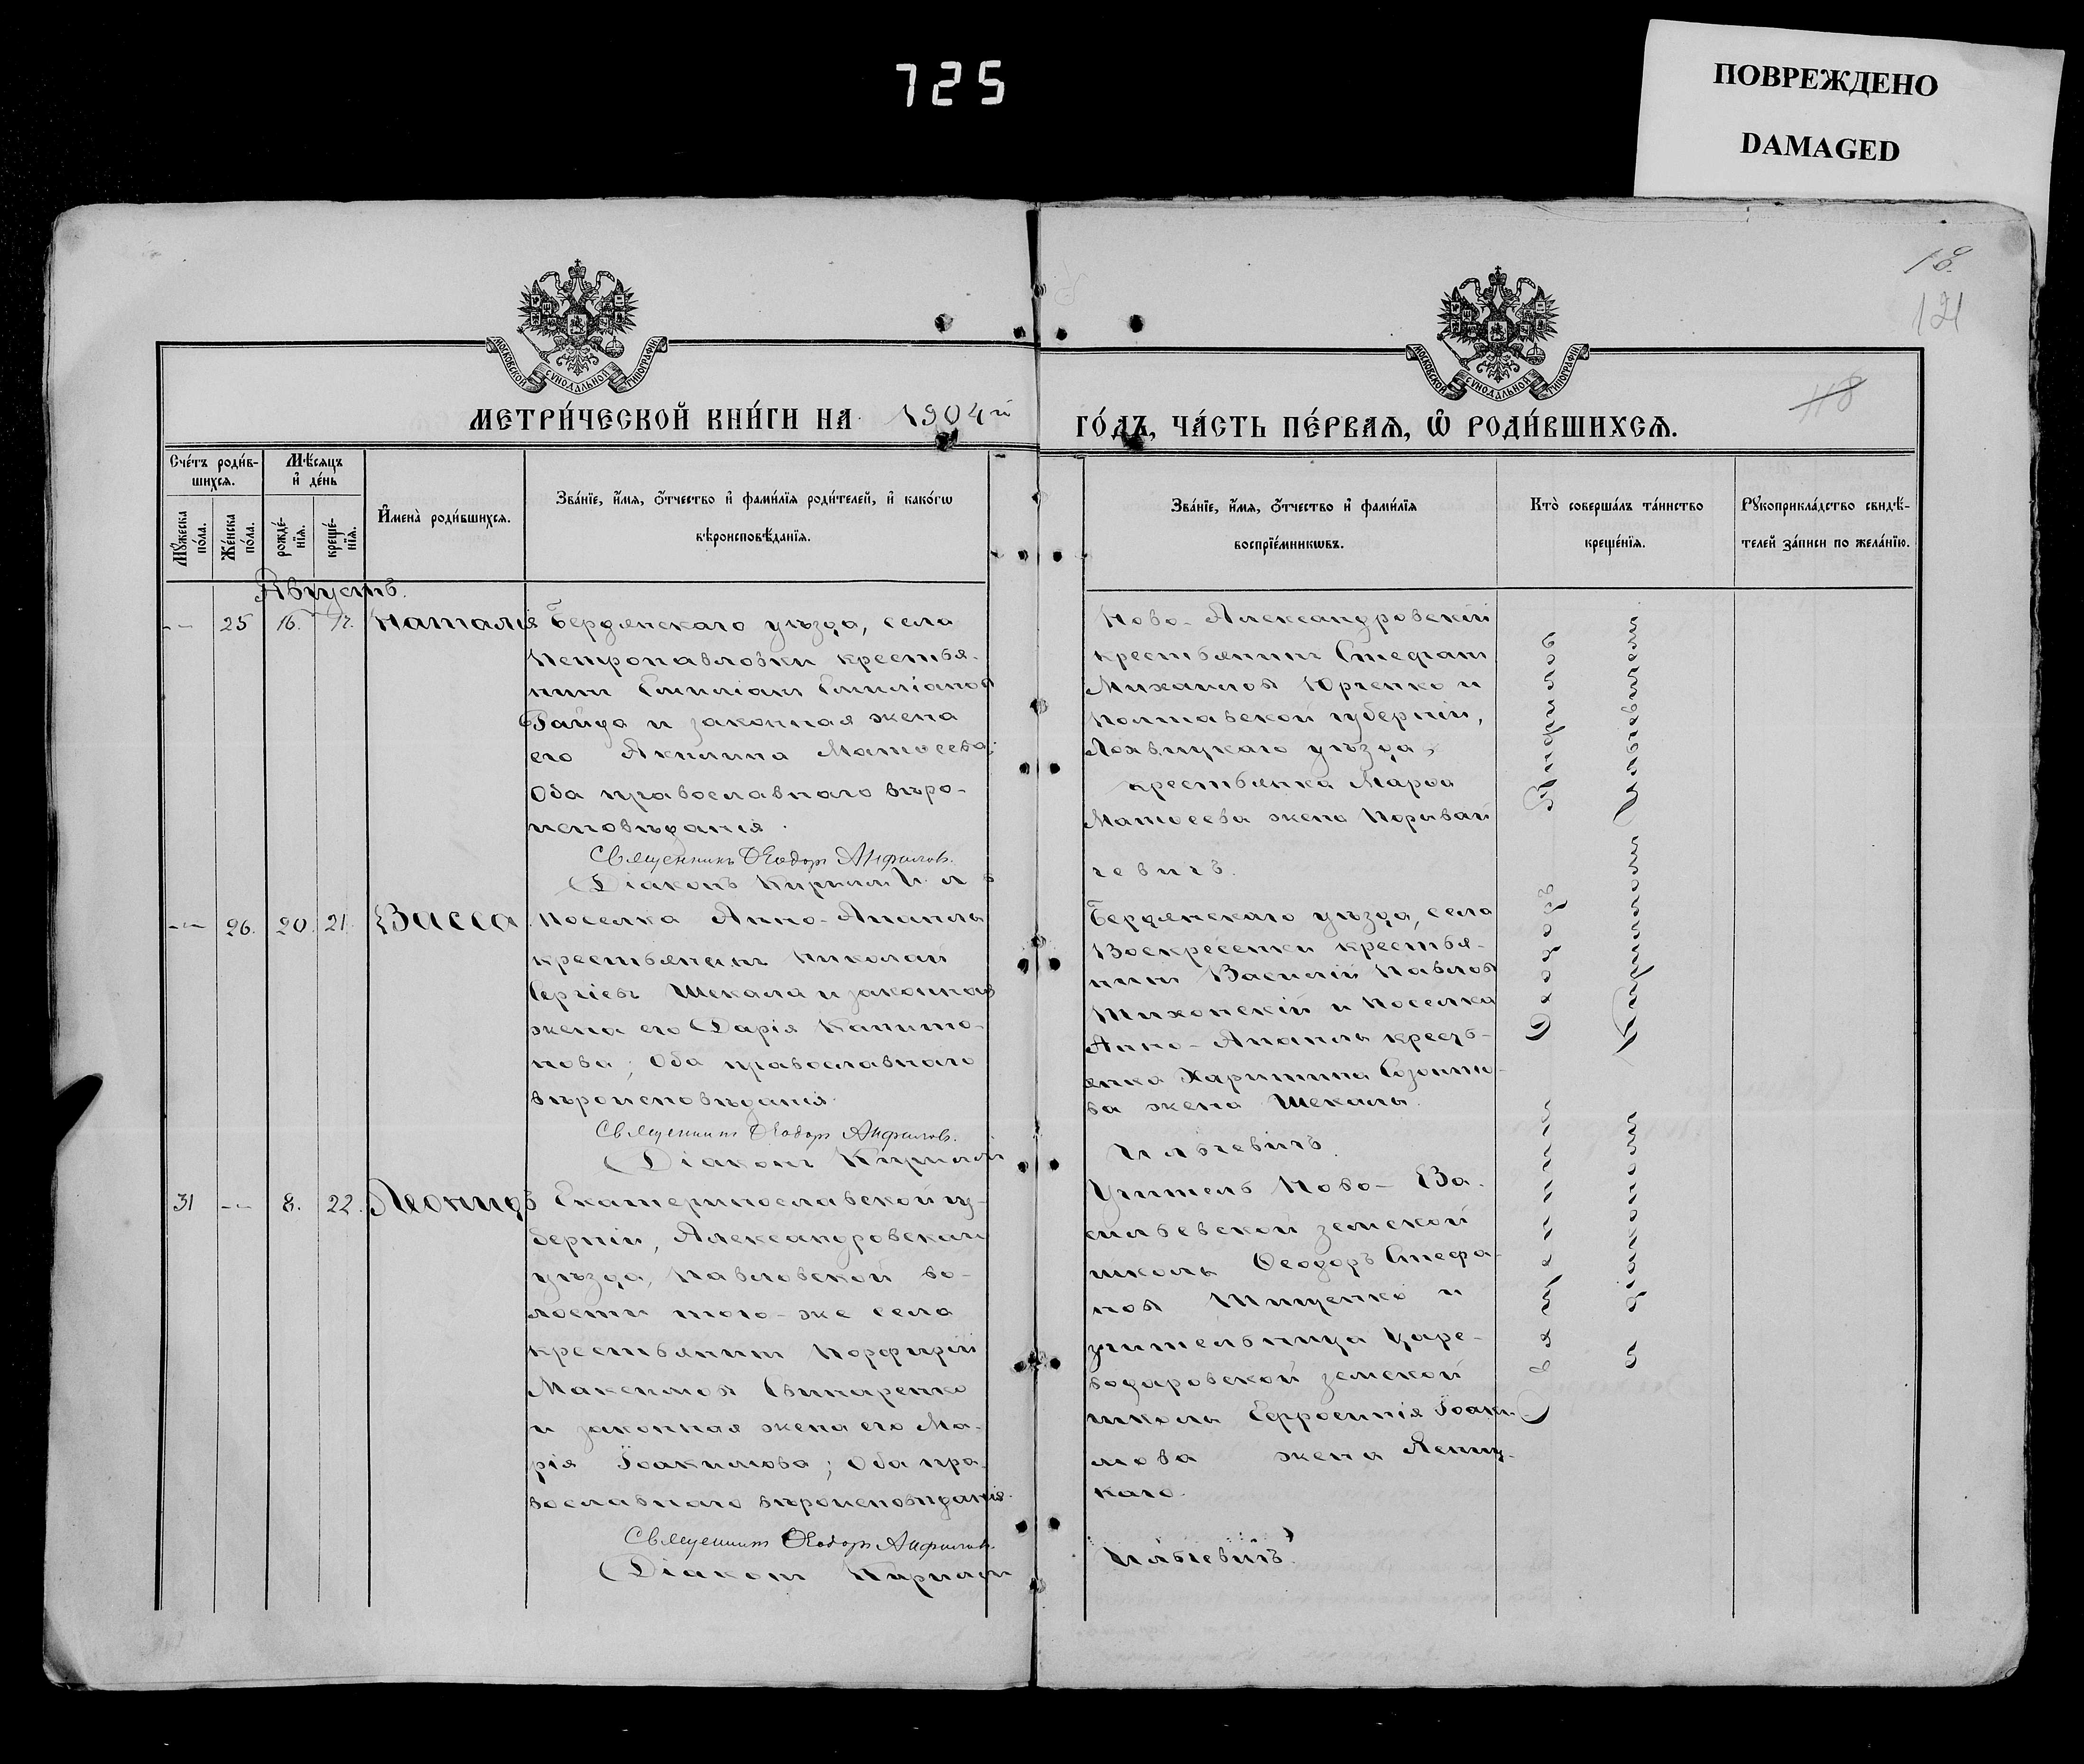 725
ПОВРЕЖДЕНО
DAMAGED
18.
121
118
МОСКОВСКОЙ СУНОДАЛЬНОЙ ТИПОГРАФІИ
МОСКОВСКОЙ СУНОДАЛЬНОЙ ТИПОГРАФІИ
МЕТРИ́ЧЕСКОЙ КНИ́ГИ НА 1904й
ГО́ДЪ, ЧА́СТЬ ПЕ́РВАЯ, Ѡ РОДИ́ВШИХСЯ.
Сче́тъ роди́в-
шихся.
Мꙋ́жеска по́ла.
Же́нска по́ла.
Мѣ́сяцъ
и҆ де́нь
рожде́-
нїя.
креще́-
нїя.
И҆мена̀ роди́вшихся.
Зва́нїе, и҆́мя, о҆́тчество и҆ фами́лїя роди́телей, и҆ како́гѡ
вѣроисповѣ́данїя.
Зва́нїе, и҆́мя, о҆́тчество и҆ фами́лїя
воспрїе́мникѡвъ.
Кто̀ соверша́лъ та́инство
креще́нїя.
Рꙋкоприкла́дство свидѣ́-
телей за́писи по жела́нїю.
Августъ.
-- 25 16. 17. Наталія
Бердянскаго уѣзда, села
Петропавловки крестья-
нинъ Емиліанъ Емиліановъ
Гайда и законная жена
его Акилина Матѳеева;
Оба православнаго вѣро-
исповѣданія.
Священникъ Ѳеодоръ Анфиловъ.
Діаконъ Кирилл
Ново-Александровскій
крестьянинъ Стефанъ
Михаиловъ Юрченко и
Полтавской губерніи,
Лохвицкаго уѣзда,
крестьянка Марѳа
Матѳеева жена Порывай
чевичъ.
-- 26. 20. 21. Васса
Поселка Анно-Анаполя
крестьянинъ Николай
Сергіевъ Шекала и законная
жена его Дарія Капито-
нова; Оба православнаго
вѣроисповѣданія.
Священникъ Ѳеодоръ Анфиловъ.
Діаконъ Кириллъ
Бердянскаго уѣзда, села
Воскресенки крестья-
нинъ Василій Павловъ
Тихонскій и Поселка
Анно-Анаполя кресть-
янка Харитина
ва жена Шекалы.
Ильчевичъ.
31 -- 8. 22. Леонидъ
Екатеринославской гу-
берніи, Александровскаго
уѣзда, Павловской во-
лости того-же села
крестьянинъ Порфирій
Максимовъ Свинаренко
и законная жена его Ма-
рія Іоакимова; Оба пра-
вославнаго вѣроисповѣданія.
Священникъ Ѳеодоръ Анфиловъ.
Діаконъ Кириллъ
Учитель Ново-Ва-
сильевской земской
школы Ѳеодоръ Стефа-
новъ Тищенко и
учительница Царе-
водаровской земской
школы Евфросинія Іоаки-
мова жена
каго.
Ильчевичъ.
Священникъ Ѳеодоръ Анфиловъ
и діаконъ Кириллъ Ильчевичъ